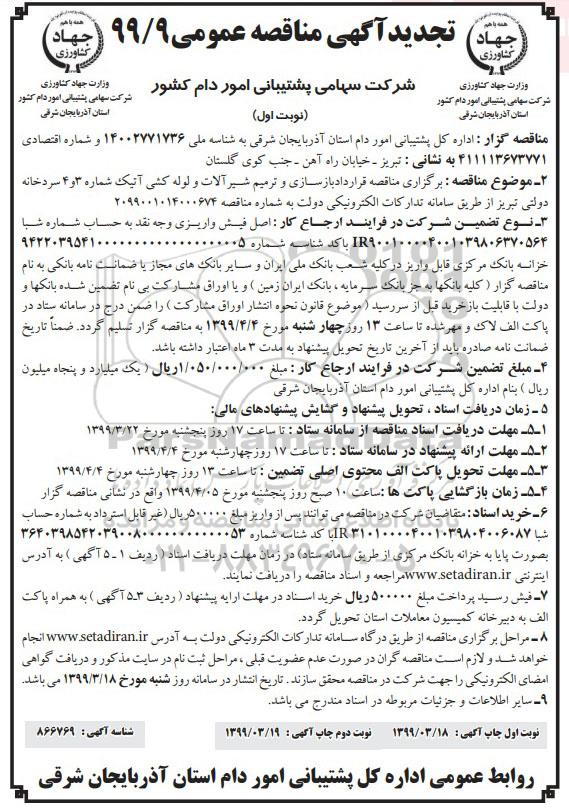 تجدیدآگهی مناقصه عمومی ۹۹/۹
همه با هم
جهاد
کشاورزی
وزارت جهاد کشاورزی
شرکت سهامی پشتیبانی امور دام کشور
استان آذربایجان شرقی
همه با هم
جهاد
کشاورزی
وزارت جهاد کشاورزی
شرکت سهامی پشتیبانی امور دام کشور
استان آذربایجان شرقی
شرکت سهامی پشتیبانی امور دام کشور
(نوبت اول)
مناقصه گزار : اداره کل پشتیبانی امور دام استان آذربایجان شرقی به شناسه ملی ۱۴۰۰۲۷۷۱۷۳۶ و شماره اقتصادی
۴۱۱۱۱۳۶۷۳۷۷۱ به نشانی : تبریز ـ خیابان راه آهن ـ جنب کوی گلستان
۲ـ موضوع مناقصه : برگزاری مناقصه قراردادبازسازی و ترمیم شیرآلات و لوله کشی آتیک شماره ۳و۴ سردخانه
دولتی تبریز از طریق سامانه تدارکات الکترونیکی دولت به شماره مناقصه ۲۰۹۹۰۰۱۰۱۴۰۰۰۶۷۴
۳ـ نوع تضمین شرکت در فرایند ارجاع کار : اصل فیش واریزی وجه نقد به حساب شماره شبا
IR۹۰۰۱۰۰۰۰۴۰۰۱۰۳۹۸۰۶۳۷۰۵۶۴ با کد شناسه شماره
خزانه بانک مرکزی قابل واریز در کلیه شعب بانک ملی ایران و سایر بانک های مجاز یا ضمانت نامه بانکی به نام
مناقصه گزار ( کلیه بانکها به جز بانک سرمایه ، بانک ایران زمین ) و یا اوراق مشارکت بی نام تضمین شده بانکها و
دولت با قابلیت بازخرید قبل از سررسید ( موضوع قانون نحوه انتشار اوراق مشارکت ) را ضمن درج در سامانه ستاد در
پاکت الف لاک و مهر شده تا ساعت ۱۳ روز چهار شنبه مورخ ۱۳۹۹/۴/۴ به مناقصه گزار تسلیم گردد. ضمناً تاریخ
ضمانت نامه صادره باید از آخرین تاریخ تحویل پیشنهاد به مدت ۳ ماه اعتبار داشته باشد.
۴ـ مبلغ تضمین شرکت در فرایند ارجاع کار : مبلغ ۱/۰۵۰/۰۰۰/۰۰۰ریال ( یک میلیارد و پنجاه میلیون
ریال ) بنام اداره کل پشتیبانی امور دام استان آذربایجان شرقی
۵ ـ زمان دریافت اسناد ، تحویل پیشنهاد و گشایش پیشنهادهای مالی:
۱ـ۵ـ مهلت دریافت اسناد مناقصه از سامانه ستاد : تا ساعت ۱۷ روز پنجشنبه مورخ ۱۳۹۹/۳/۲۲
۲ـ۵ـ مهلت ارائه پیشنهاد در سامانه ستاد : تا ساعت ۱۷ روزچهارشنبه مورخ ۱۳۹۹/۴/۴
۳ـ۵ـ مهلت تحویل پاکت الف محتوی اصلی تضمین : تا ساعت ۱۳ روز چهارشنبه مورخ ۱۳۹۹/۴/۴
۴ـ۵ـ زمان بازگشایی پاکت ها :ساعت ۱۰ صبح روز پنجشنبه مورخ ۱۳۹۹/۴/۰۵ واقع در نشانی مناقصه گزار
۶ـ خرید اسناد : متقاضیان شرکت در مناقصه می توانند پس از واریز مبلغ ۵۰۰۰۰۰ریال (غیر قابل استرداد به شماره حساب
شبا IR۳۱۰۱۰۰۰۰۴۰۰۱۰۳۹۸۰۴۰۰۶۰۸۷ با کد شناسه شماره
بصورت پایا به خزانه بانک مرکزی از طریق سامانه ستاد) در زمان مهلت دریافت اسناد ( ردیف ۱ـ۵ آگهی ) به آدرس
اینترنتی www.setadiran.ir مراجعه و اسناد مناقصه را دریافت نمایند.
۷ـ فیش رسید پرداخت مبلغ ۵۰۰۰۰۰ ریال خرید اسناد در مهلت ارایه پیشنهاد ( ردیف ۳ـ۵ آگهی ) به همراه پاکت
الف به دبیرخانه کمیسیون معاملات استان تحویل گردد.
۸ ـ مراحل برگزاری مناقصه از طریق درگاه سامانه تدارکات الکترونیکی دولت به آدرس www.setadiran.ir انجام
خواهد شد و لازم است مناقصه گران در صورت عدم عضویت قبلی ، مراحل ثبت نام در سایت مذکور و دریافت گواهی
امضای الکترونیکی را جهت شرکت در مناقصه محقق سازند . تاریخ انتشار در سامانه روز شنبه مورخ ۱۳۹۹/۳/۱۸ می باشد.
۹ـ سایر اطلاعات و جزئیات مربوطه در اسناد مندرج می باشد.
نوبت اول چاپ آگهی : ۱۳۹۹/۰۳/۱۸
نوبت دوم چاپ آگهی : ۱۳۹۹/۰۳/۱۹
شناسه آگهی : ۸۶۶۷۶۹
روابط عمومی اداره کل پشتیبانی امور دام استان آذربایجان شرقی
ParsNamadData
۰۲۱-۸۸۳۴۹۶۷۰-۵